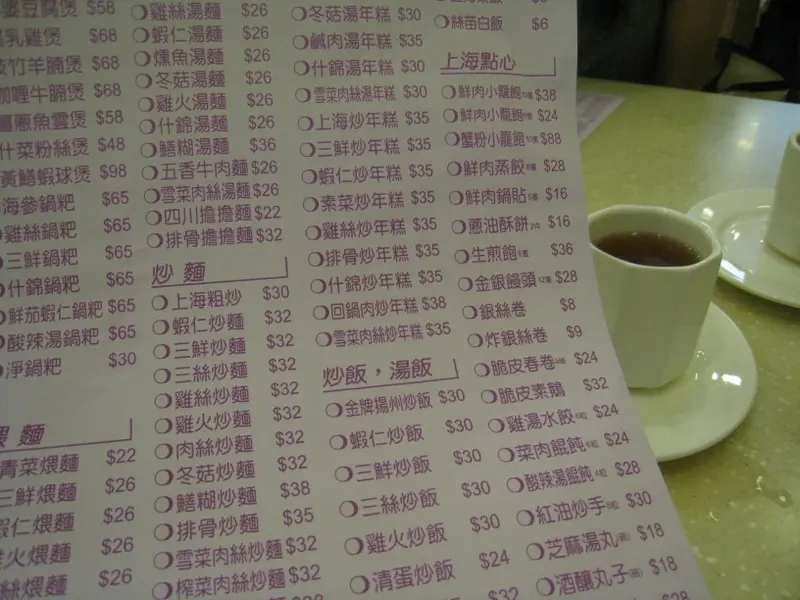 婆豆腐煲 $58
乳雞煲 $68
枝竹羊腩煲 $68
咖喱牛腩煲 $68
薑蔥魚雲煲 $58
什菜粉絲煲 $48
黃鱔蝦球煲 $98
海參鍋粑 $65
雞絲鍋粑 $65
三鮮鍋粑 $65
什錦鍋粑 $65
鮮茄蝦仁鍋粑 $65
酸辣湯鍋粑 $65
淨鍋粑 $30
煨麵
青菜煨麵 $22
三鮮煨麵 $26
蝦仁煨麵 $26
雞火煨麵 $26
絲煨麵 $26
雞絲湯麵 $26
蝦仁湯麵 $26
燻魚湯麵 $26
冬菇湯麵 $26
雞火湯麵 $26
什錦湯麵 $26
鱔糊湯麵 $36
五香牛肉麵 $26
雪菜肉絲湯麵 $26
四川擔擔麵 $22
排骨擔擔麵 $32
炒麵
上海粗炒 $30
蝦仁炒麵 $32
三鮮炒麵 $32
三絲炒麵 $32
雞絲炒麵 $32
雞火炒麵 $32
肉絲炒麵 $32
冬菇炒麵 $32
鱔糊炒麵 $38
排骨炒麵 $35
雪菜肉絲炒麵 $32
榨菜肉絲炒麵 $32
冬菇湯年糕 $30
鹹肉湯年糕 $35
什錦湯年糕 $30
雪菜肉絲湯年糕 $30
上海炒年糕 $35
三鮮炒年糕 $35
蝦仁炒年糕 $35
素菜炒年糕 $35
雞絲炒年糕 $35
排骨炒年糕 $35
什錦炒年糕 $35
回鍋肉炒年糕 $38
雪菜肉絲炒年糕 $35
炒飯，湯飯
金牌揚州炒飯 $30
蝦仁炒飯 $30
三鮮炒飯 $30
三絲炒飯 $30
雞火炒飯 $30
清蛋炒飯 $24
$32
絲苗白飯 $6
上海點心
鮮肉小籠飽 $38
鮮肉小籠飽 $24
蟹粉小籠飽 $88
鮮肉蒸餃 $28
鮮肉鍋貼 $16
蔥油酥餅 $16
生煎飽 $36
金銀饅頭 $28
銀絲卷 $8
炸銀絲卷 $9
脆皮春卷 $24
脆皮素鵝 $32
雞湯水餃 $24
菜肉餛飩 $24
酸辣湯餛飩 $28
紅油炒手 $30
芝麻湯丸 $18
酒釀丸子 $18